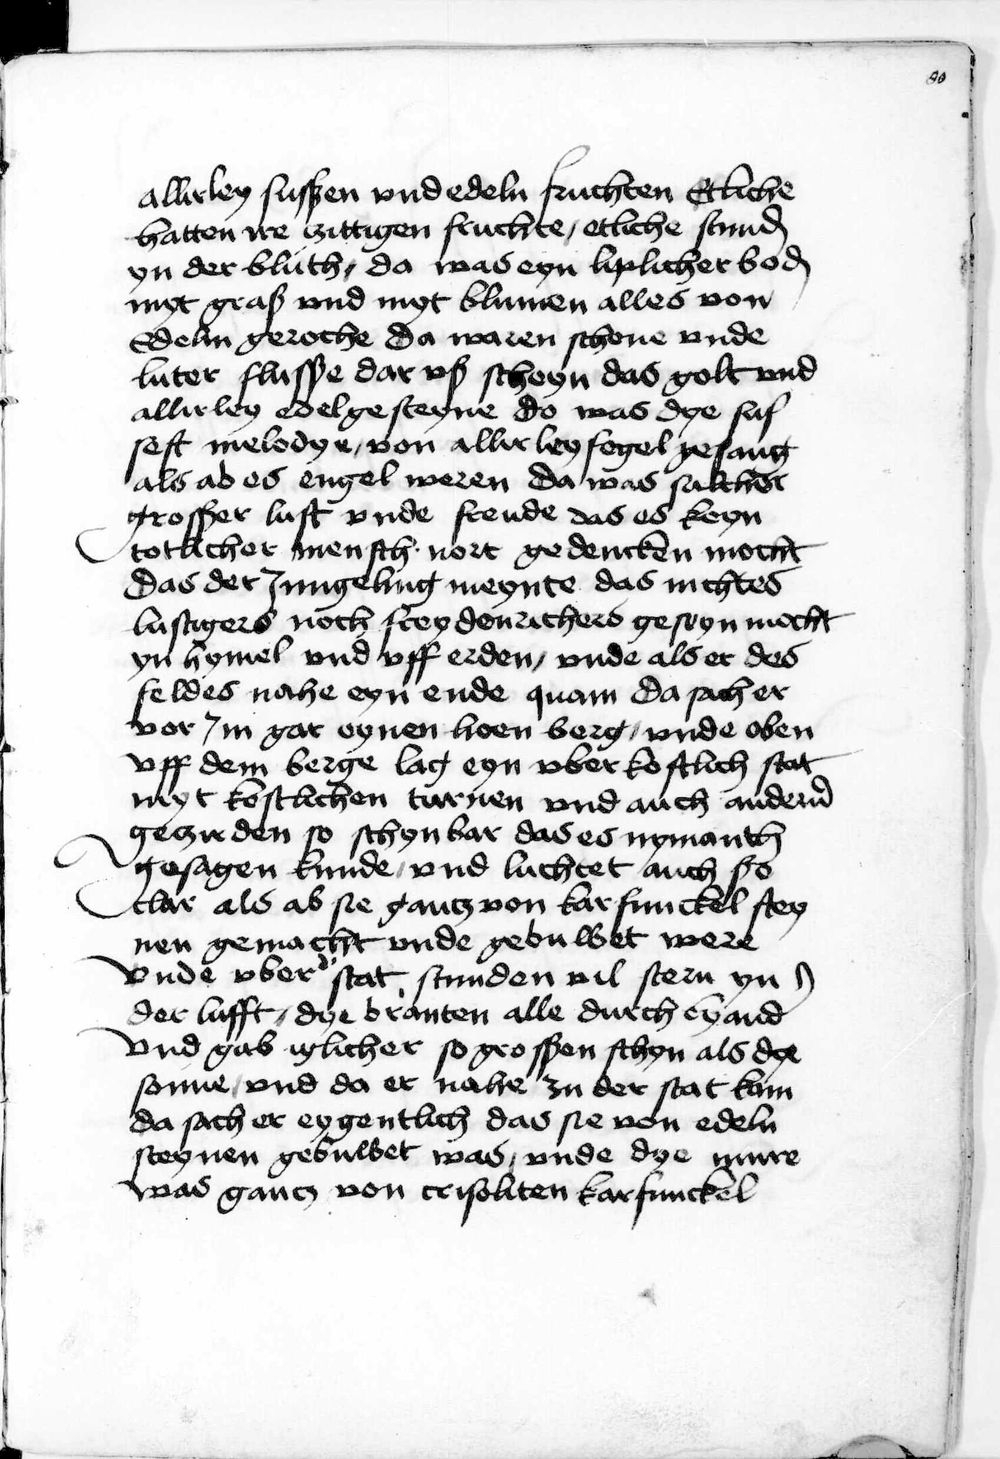 80
allirley sussen vnd edeln fruchten Etliche
hatten ire zittigen fruchte / etliche stund
yn der bluth / da was eyn liplicher bod
myt graß vnd myt blumen alles von
Edelm geroche Da waren schone vnde
luter flusse dar vß scheyn das golt vnd
allirley edelgesteyne Do was dye sus
sest melodye / von allirley fogel gesang
als ab es engel weren Da was sulcher
grosser lust vnde freude das es keyn
totlicher mensch nort gedencken mocht
Das der Jungeling meynte das nichtes
lustigers noch freydenrichers gesyn mocht
yn hymel vnd vff erden / vnde als er des
feldes nahe eyn ende quam Da sach er
vor Jm gar eynen hoen berg / vnde oben
vff dem berge lag eyn vber kostlich stat
myt kostlichen turnen vnd auch andern
gezirden so schynbar das es nymanth
gesagen kunde / vnd luchtet auch so
clar als ab sie gantz von karfunckel stey
nen gemacht vnde gebuwet were
Vnde vber d' stat stunden vil stern yn
der lufft / dye branten alle durch eynand
Vnd gab iglicher so grossen schyn als dye
sonne / vnd da er nahe zu der stat kam
da sach er eygentlich das sie von edeln
steynen gebuwet was / vnde dye mure
was gantz von crisoliten karfunckel